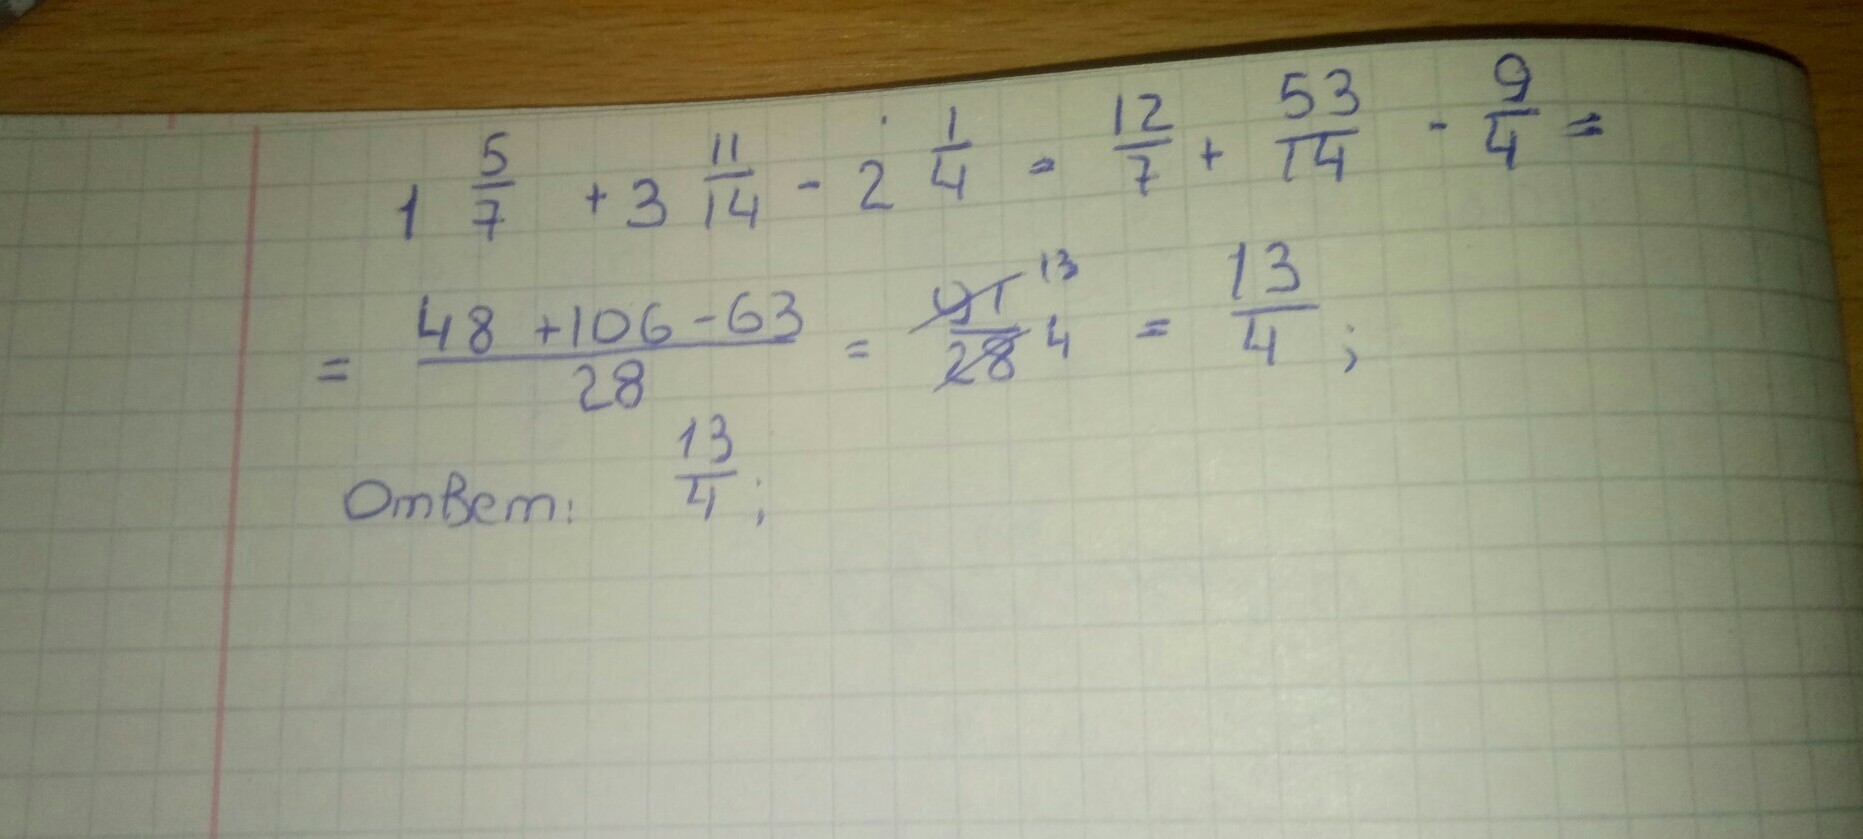 1 5/7 + 3 11/14 - 2 1/4 = 12/7 + 53/14 - 9/4 =
= 48 + 106 - 63/28 = 91/28 13 4 = 13/4;
Ответ: 13/4;